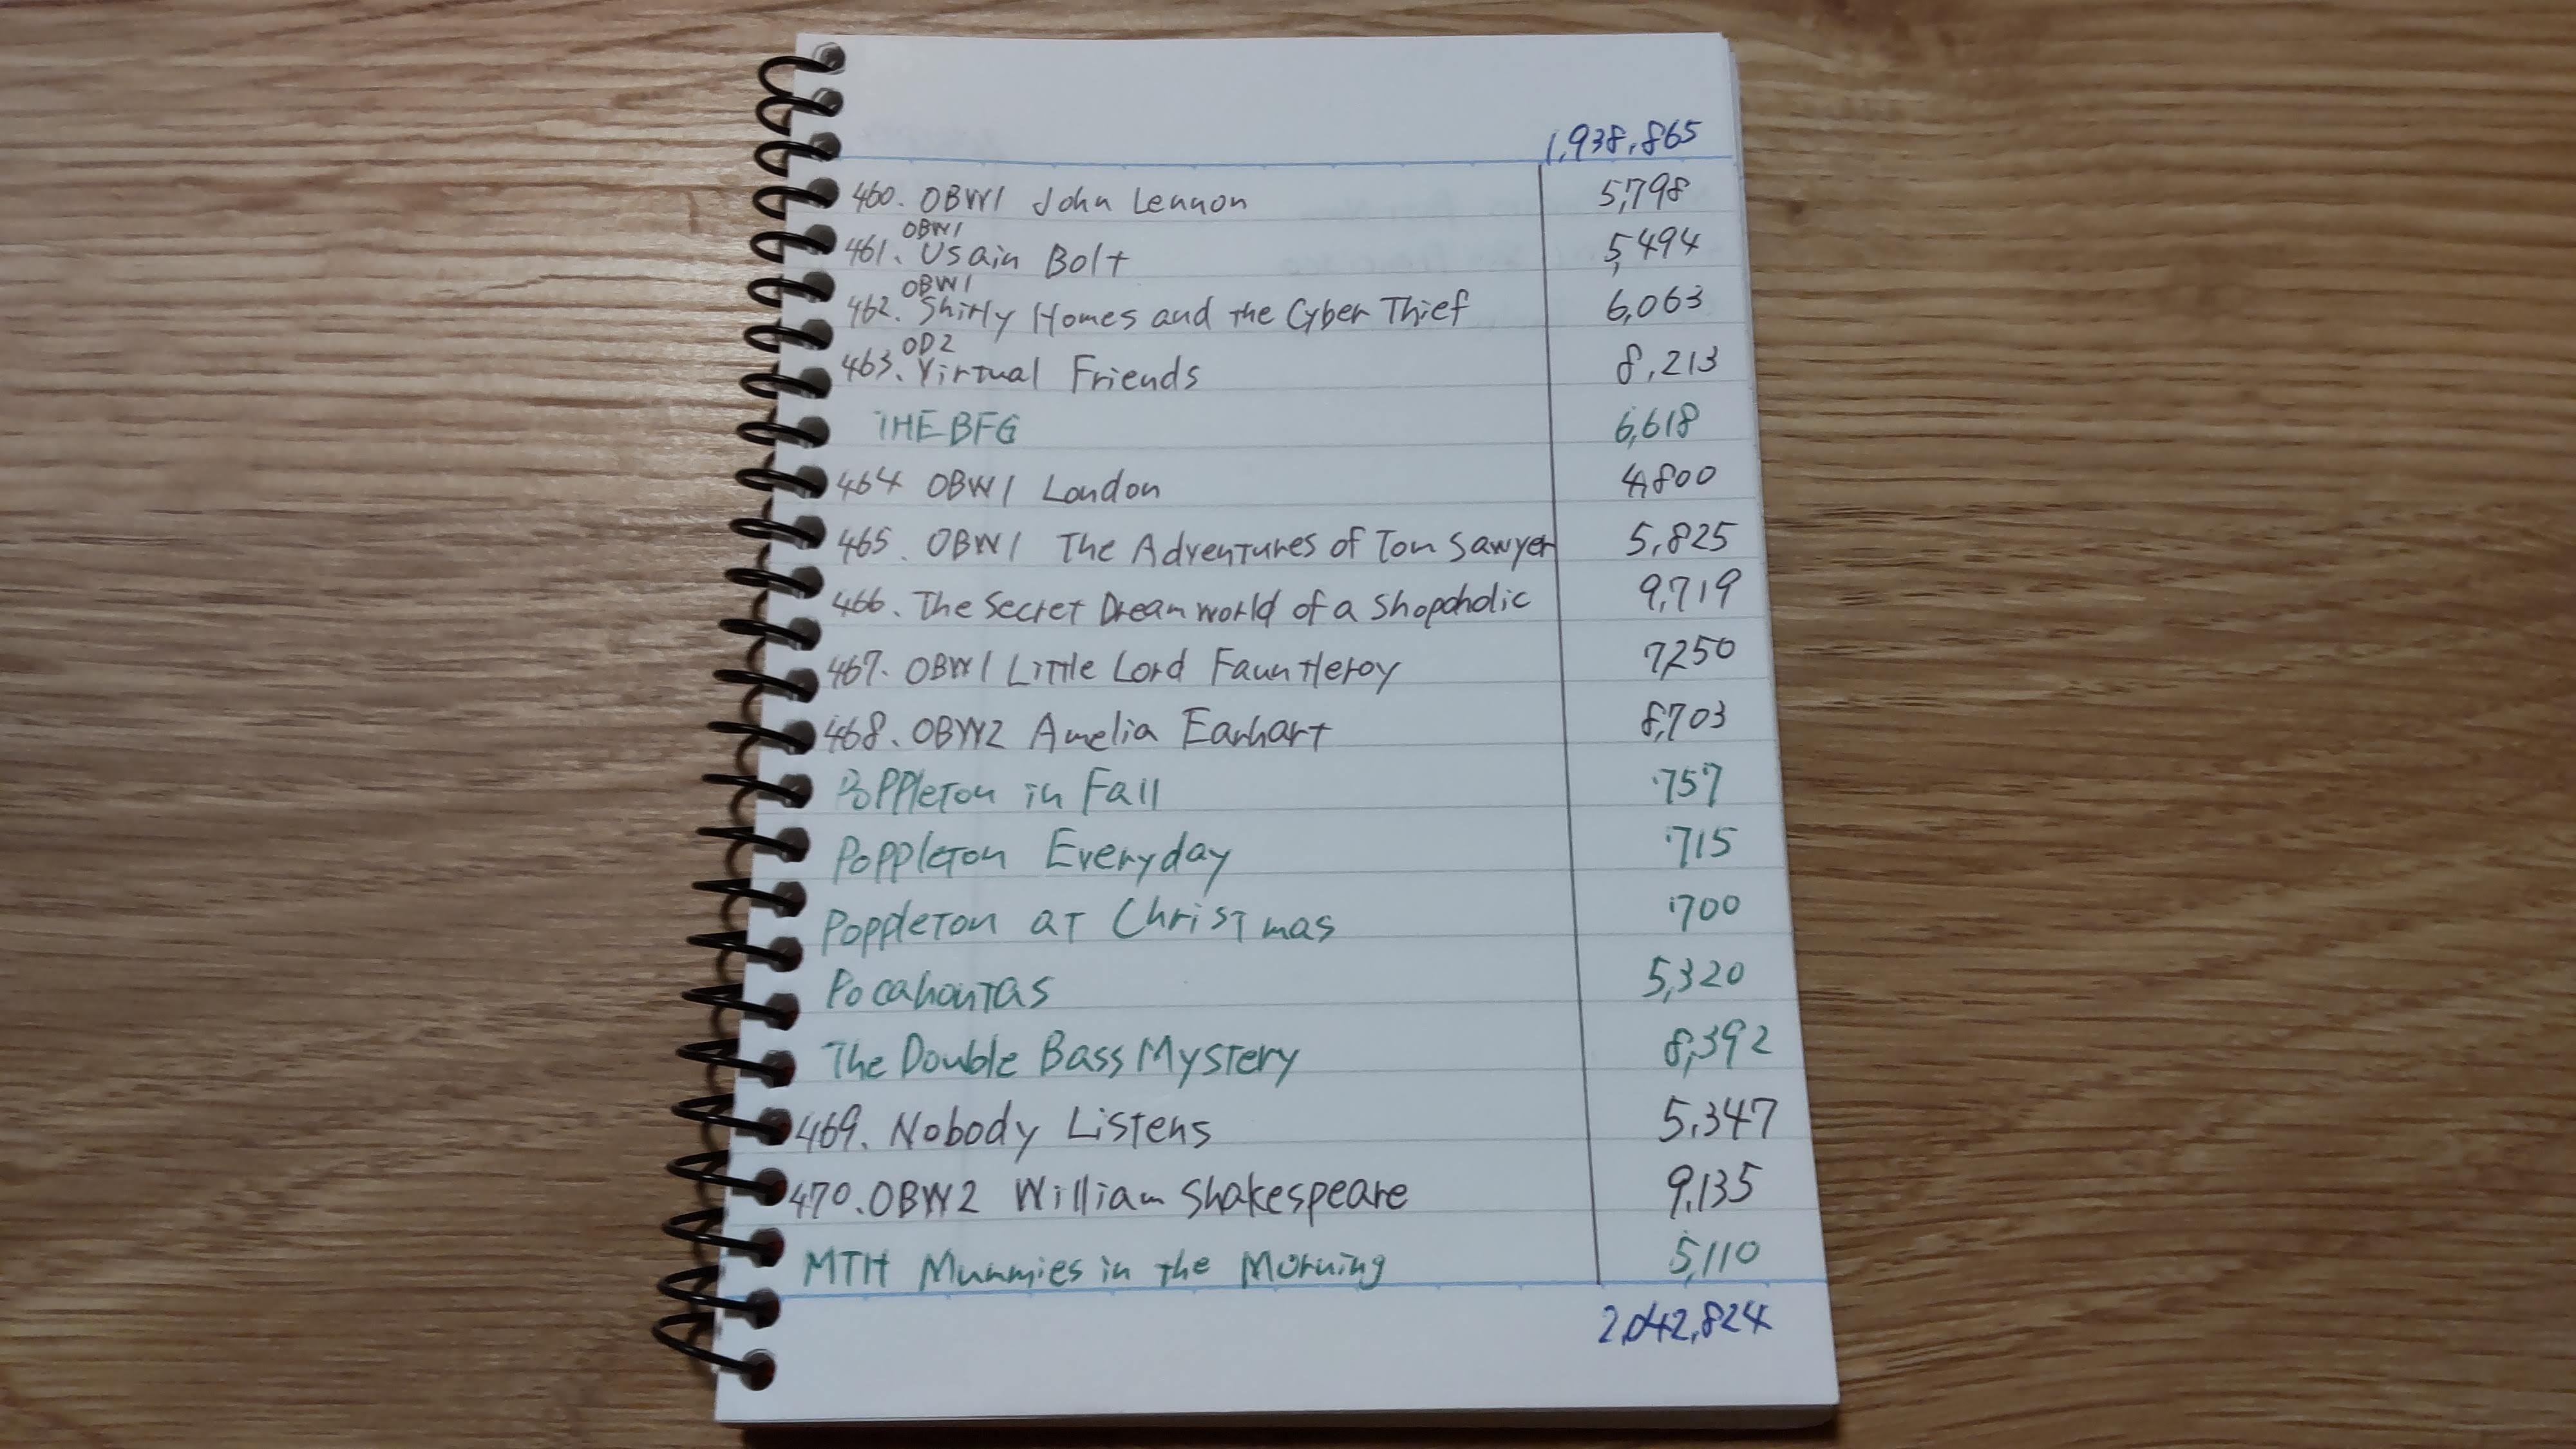 1,938,865
460. OBW1 John Lennon 5,798
OBW1
461. Usain Bolt 5,494
OBW1
462. Shirly Homes and the Cyber Thief 6,063
OD2
463. Virtual Friends 8,213
THE BFG 6,618
464 OBW1 London 4,800
465. OBW1 The Adventures of Tom Sawyer 5,825
466. The Secret Dreamworld of a Shopaholic 9,719
467. OBW1 Little Lord Fauntleroy 7,250
468. OBW2 Amelia Earhart 8,703
Poppleton in Fall 757
Poppleton Everyday 715
Poppleton at Christmas 700
Pocahontas 5,320
The Double Bass Mystery 8,392
469. Nobody Listens 5,347
470. OBW2 William Shakespeare 9,135
MTH Mummies in the Morning 5,110
2,042,824